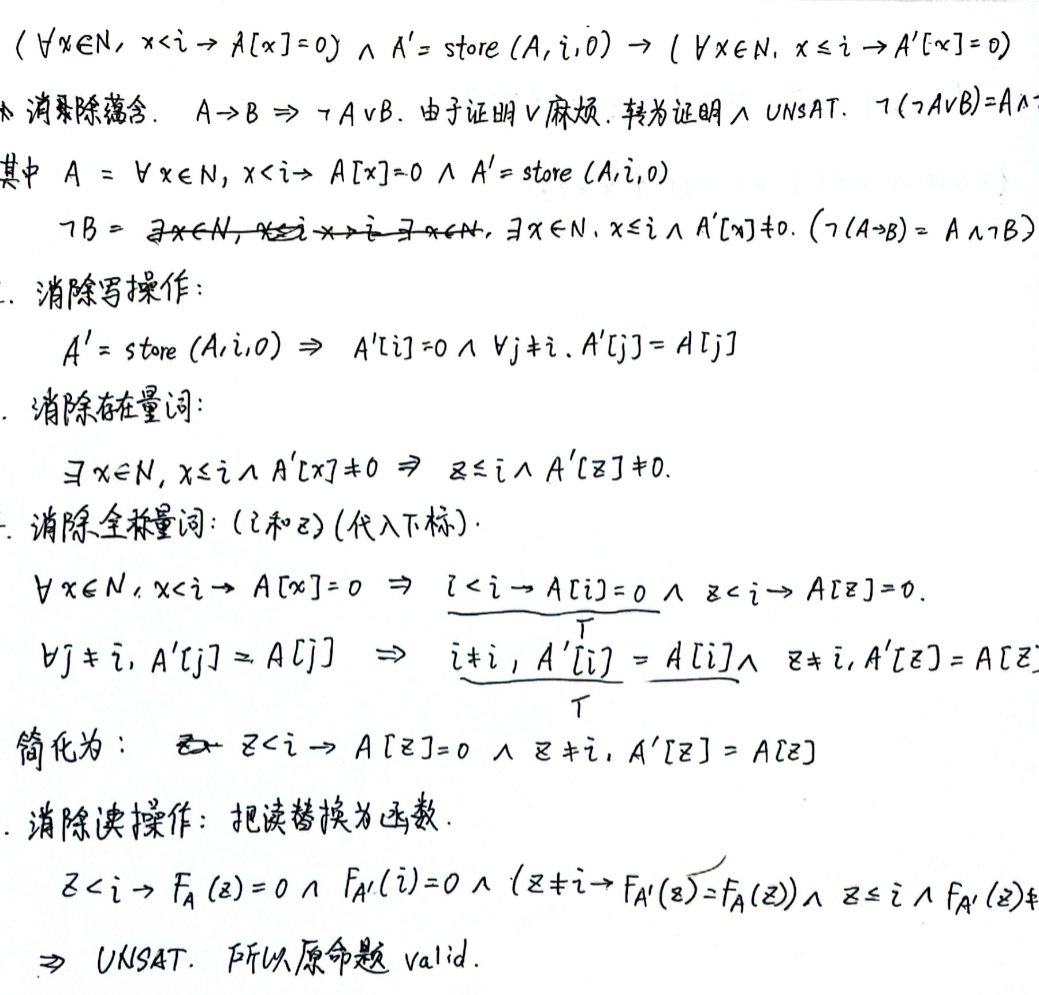 (∀x∈N, x<i → A[x]=0) ∧ A'= store (A, i, 0) → (∀x∈N, x≤i → A'[x]=0)
消除蕴含. A→B ⇒ ¬A∨B. 由于证明∨麻烦. 转为证明∧ UNSAT. ¬(¬A∨B)=A∧¬
其中 A = ∀x∈N, x<i→ A[x]=0 ∧ A'= store (A,i,0)
¬B = ∃x∈N, x≤i ∧ A'[x]≠0. (¬(A→B) = A∧¬B)
. 消除写操作:
A'= store (A,i,0) ⇒ A'[i]=0 ∧ ∀j≠i. A'[j]= A[j]
. 消除存在量词:
∃x∈N, x≤i ∧ A'[x]≠0 ⇒ z≤i ∧ A'[z]≠0.
. 消除全称量词: (i和z) (代入下标).
∀x∈N, x<i→ A[x]=0 ⇒ i<i → A[i]=0 ∧ z<i→ A[z]=0.
T
∀j≠i, A'[j] = A[j] ⇒ i≠i, A'[i] = A[i]∧ z≠i, A'[z] = A[z]
T
简化为: z<i → A[z]=0 ∧ z≠i, A'[z] = A[z]
. 消除读操作: 把读替换为函数.
z<i → F_A(z)=0 ∧ F_A'(i)=0 ∧ (z≠i→ F_A'(z)=F_A(z)) ∧ z≤i ∧ F_A'(z)≠
⇒ UNSAT. 所以原命题 valid.